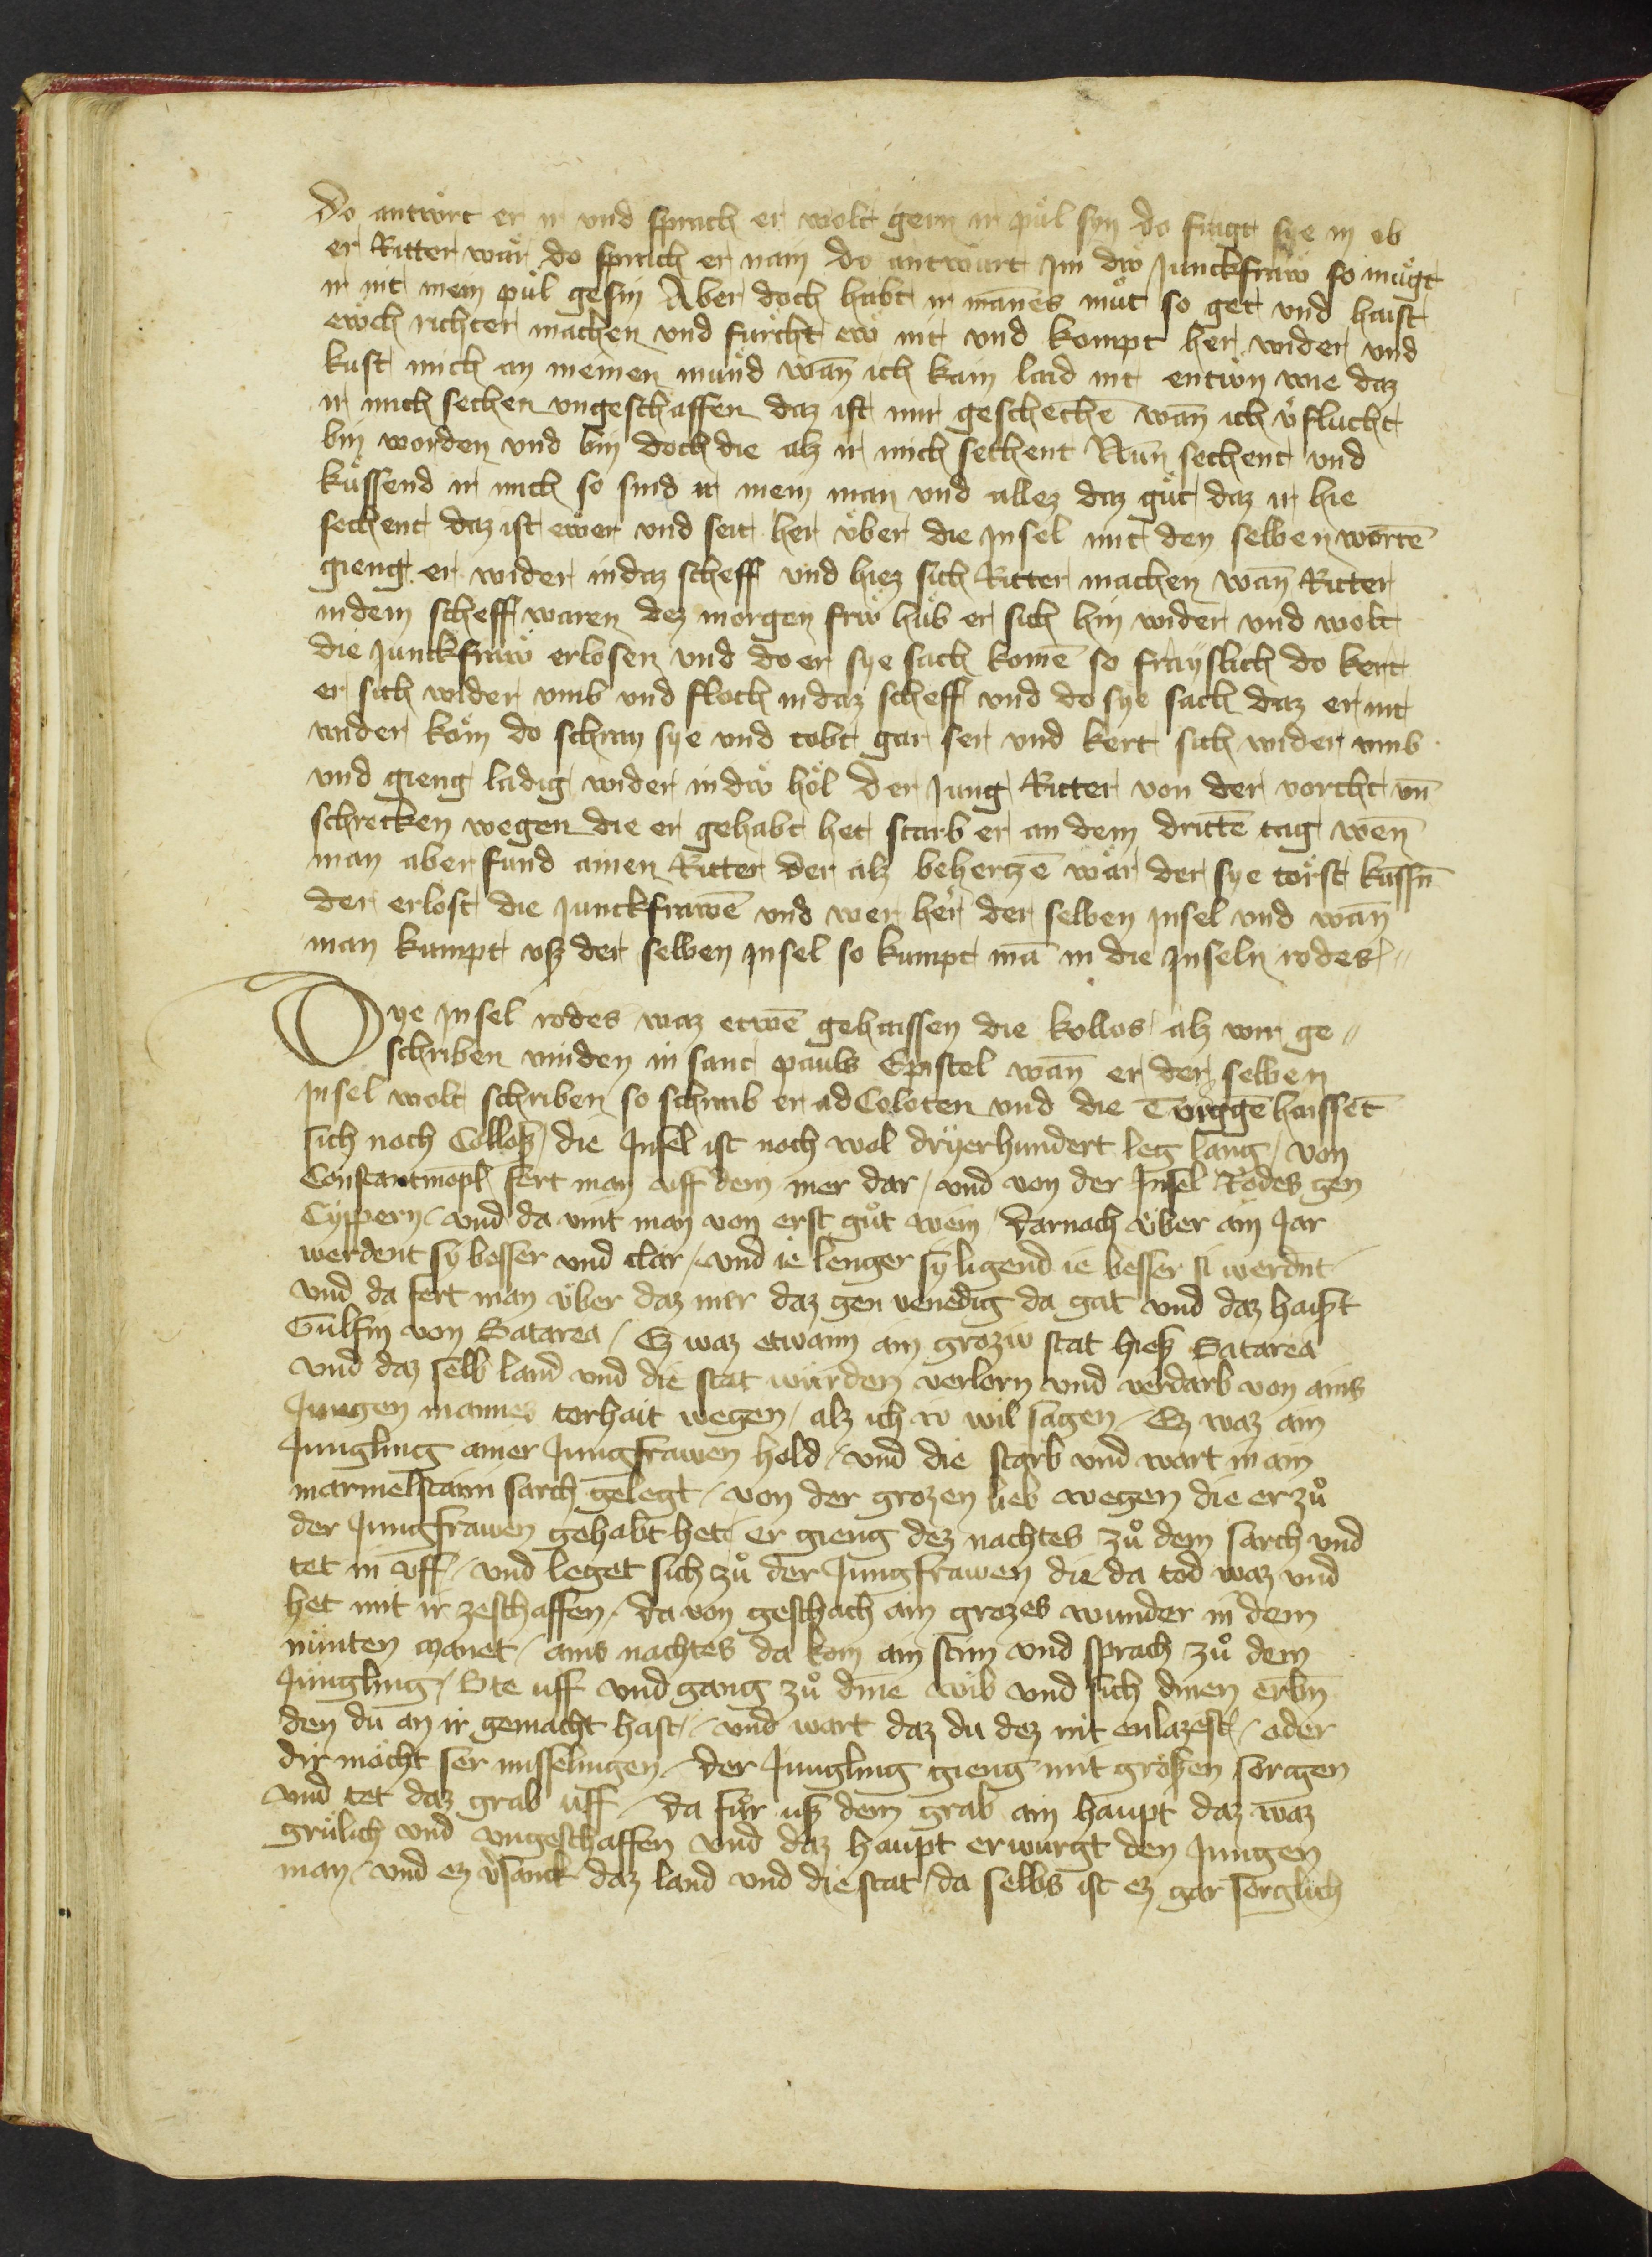 Do antwort er ir vnd sprach er wolt gern ir půl syn do fragt sye in ob
er Ritter wär do sprach er nain do antwürt Im diẅ Junckfraẅ so mügt
ir nit mein půl gesin Aber doch habt ir mañes můt so get vnd haist
eẅch richter machen vnd fürcht eẅ nit vnd kompt her wider vnd
kust mich an meinen mund wañ ich kain laid nit entün wie daz
ir mich sechen vngeschaffen daz ist mir geschechē wañ ich v͛flücht
bin worden vnd bin doch die alz ir mich sechent Nün sechent vnd
küssend ir mich so sind ir mein man vnd allez daz gůt daz ir hie
sechent daz ist eẅer vnd seit her über die Insel mit den selben wortē
gieng er wider in daz scheff vnd hiez sich Ritter machen wañ Ritter
in dem scheff waren dez morgen frẅ hüb er sich hin wider vnd wolt
die Junckfraẅ erlösen vnd do er sye sach komē so frayslich do kert
er sich wider vmb vnd floch in daz scheff vnd do sye sach daz er nit
wider köm do schray sye vnd tobt gar ser vnd kert sich wider vmb
vnd gieng ladig wider in diẅ höl Der Jung Ritter von der vorcht vn̄
schrecken wegen die er gehabt het starb er an dem drittē tag wen̄
man aber fund ainen Ritter der alz behertzē wär der sye törst küssn̄
der erlost die Junckfrawē vnd wer her der selben Insel vnd wañ
man kumpt vsz der selben Insel so kumpt mā in die Inseln rodes
Dye Insel rodes waz etwē gehaissen die kollos alz wir ge
schriben vinden in sant pauls Epistel wañ er der selben
Insel wolt schriben so schraib er ad Coloten vnd die Türggē haissēt
sich noch Collosz / die Insel ist noch wol dryerhundert leg lang / von
Constantinopl fert man vff dem mer dar / vnd von der Insel Rodes gen
Cyppern / vnd da vint man von erst gůt wein / Darnach über ain Jar
werdent sy besser vnd clar / vnd ie lenger sy ligend ie besser si werdnt
vnd da fert man über daz mer daz gen venedig da gat vnd daz haiszt
Gulfin von Satarea / Ez waz etwann ain groziv stat hiesz Satarea
vnd daz selb land vnd die stat wurden verlorn vnd verdarb von ains
Jungen mannes torhait wegen / alz ich w wil sagen / Ez waz ain
Jungling ainer Jungfrawen hold / vnd die starb vnd wart in ain
marmelstainin sarch gelegt / von der grozen lieb wegen die er zů
der Jungfrawen gehabt het / er gieng dez nachtes zů dem sarch vnd
tet in vff / vnd leget sich zů der Jungfrawen die da tod waz vnd
het mit ir zeschaffen / da von geschach ain grozes wunder in dem
nünten manet / ains nachtes da kom ain stim vnd sprach zů dem
Jungling / Ste uff vnd gang zů dine wib vnd sich dinen erbn̄
den du an ir gemacht hast / vnd wart daz du dez nit enlazest / oder
dir möcht ser misselingen / der Jungling gieng mit groszen sorgen
vnd tet daz grab uff / da für usz dem grab ain haupt daz waz
grülich vnd vngeschaffen vnd daz haupt erwurgt den Jungen
man / vnd ez v͛sanck daz land vnd die stat / da selbs ist ez gar sorglich